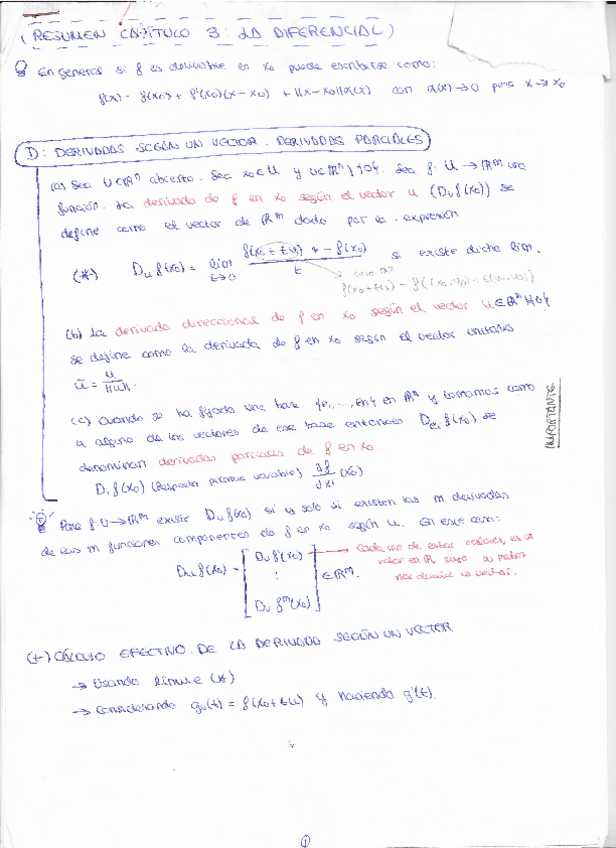 (RESUMEN CAPÍTULO 3: LA DIFERENCIAL)
En general si f es derivable en x₀ puede escribirse como:
f(x) = f(x₀) + f'(x₀)(x-x₀) + ||x-x₀||α(x) con α(x)→0 para x→x₀
D: DERIVADAS SEGÚN UN VECTOR. DERIVADAS PARCIALES
(a) Sea U⊂ℝⁿ abierto. Sea x₀∈U y u∈ℝⁿ\{0}. Sea f: U→ℝᵐ una
función. La derivada de f en x₀ según el vector u (Dᵤf(x₀)) se
define como el vector de ℝᵐ dado por la expresión
(*) Dᵤf(x₀) = lim t→0 f(x₀+tu) - f(x₀) / t si existe dicho lim.
(b) La derivada direccional de f en x₀ según el vector u∈ℝⁿ\{0}
se define como la derivada de f en x₀ según el vector unitario
ū = u/||u||.
(c) Cuando se ha fijado una base {e₁,...,eₙ} en ℝⁿ y tomamos como
u alguno de los vectores de esa base entonces Deᵢf(x₀) se
denominan derivadas parciales de f en x₀.
D₁f(x₀) (Respecto primera variable) ∂f/∂x₁ (x₀)
IMPORTANTE
Para f:U→ℝᵐ existe Dᵤf(x₀) si y solo si existen las m derivadas
de las m funciones componentes de f en x₀ según u. En ese caso:
Dᵤf(x₀) = [Dᵤf¹(x₀) ⋮ Dᵤfᵐ(x₀)] ∈ℝᵐ.
Cada uno de estos valores, es un
valor en ℝ, su matriz
nos un vector.
(+) CÁLCULO EFECTIVO DE LA DERIVADA SEGÚN UN VECTOR
→ Usando límite (*)
→ Considerando gᵤ(t) = f(x₀+tu) y haciendo g'(t).
1